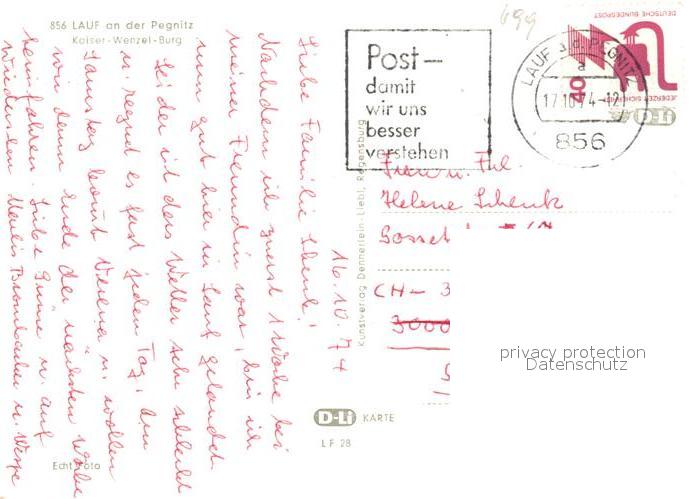 856 LAUF an der Pegnitz
Kaiser-Wenzel-Burg
16.10.74
Liebe Familie Schenk!
Nachdem ich zuerst 1 Woche bei
meiner Freundin war, bin ich
nun gut hier in Lauf gelandet.
Leider ist das Wetter sehr schlecht
u. regnet es fast jeden Tag. Am
Samstag kommt Verena u. wollen
wir dann Ende der nächsten Woche
heimfahren. Liebe Grüsse u. auf
Wiedersehn
Echt Foto
Kunstverlag Dennerlein-Liebl, Regensburg
D-Li KARTE
LF 28
699
Post-
damit
wir uns
besser
verstehen
LAUF a.d. PEGNITZ
a
17.10.74-12
856
DEUTSCHE BUNDESPOST
40
JEDERZEIT SICHERHEIT
D-Li
Frau u. Frl.
Helene Schenk
CH- 3
3000
privacy protection
Datenschutz